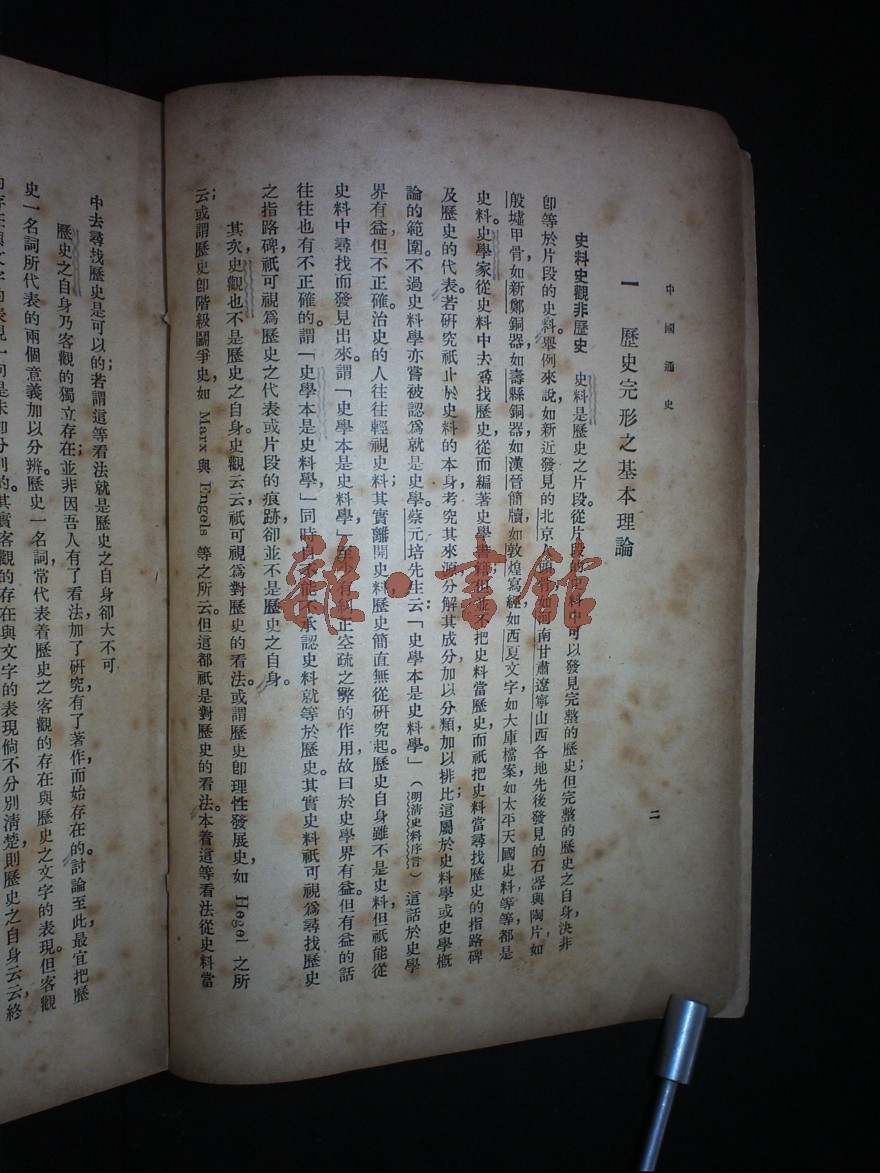 中國通史
二
一 歷史完形之基本理論
史料史觀非歷史 史料是歷史之片段。從片段的史料中可以發見完整的歷史;但完整的歷史之自身,決非
卽等於片段的史料。舉例來說,如新近發見的北京人頭骨,如河南甘肅遼寧山西各地先後發見的石器與陶片,如
殷墟甲骨,如新鄭銅器,如壽縣銅器,如漢晉簡牘,如敦煌寫經,如西夏文字,如大庫檔案,如太平天國史料等等,都是
史料。史學家從史料中去尋找歷史,從而編著史學書籍,但並不把史料當歷史,而祇把史料當尋找歷史的指路碑
及歷史的代表。若硏究祇止於史料的本身,考究其來源,分解其成分,加以分類,加以排比,這屬於史料學或史學槪
論的範圍。不過史料學亦嘗被認爲就是史學。蔡元培先生云:「史學本是史料學。」(明淸史料序言)這話於史學
界有益,但不正確。治史的人往往輕視史料;其實離開史料,歷史簡直無從硏究起。歷史自身雖不是史料,但祇能從
史料中尋找而發見出來。謂「史學本是史料學,」至少有糾正空疏之弊的作用,故曰於史學界有益。但有益的話
往往也有不正確的。謂「史學本是史料學,」同時自不能不承認史料就等於歷史。其實史料祇可視爲尋找歷史
之指路碑,祇可視爲歷史之代表或片段的痕跡,卻並不是歷史之自身。
其次,史觀也不是歷史之自身。史觀云云,祇可視爲對歷史的看法。或謂歷史卽理性發展史,如 Hegel 之所
云;或謂歷史卽階級鬭爭史,如 Marx 與 Engels 等之所云。但這都祇是對歷史的看法。本着這等看法,從史料當
中去尋找歷史是可以的;若謂這等看法就是歷史之自身,卻大不可。
歷史之自身乃客觀的獨立存在;並非因吾人有了看法,加了硏究,有了著作,而始存在的。討論至此,最宜把歷
史一名詞所代表的兩個意義加以分辨。歷史一名詞,常代表着歷史之客觀的存在與歷史之文字的表現。但客觀
的存在與文字的表現一向是未加分別的。其實客觀的存在與文字的表現倘不分別淸楚,則歷史之自身云云,終
雜·書館